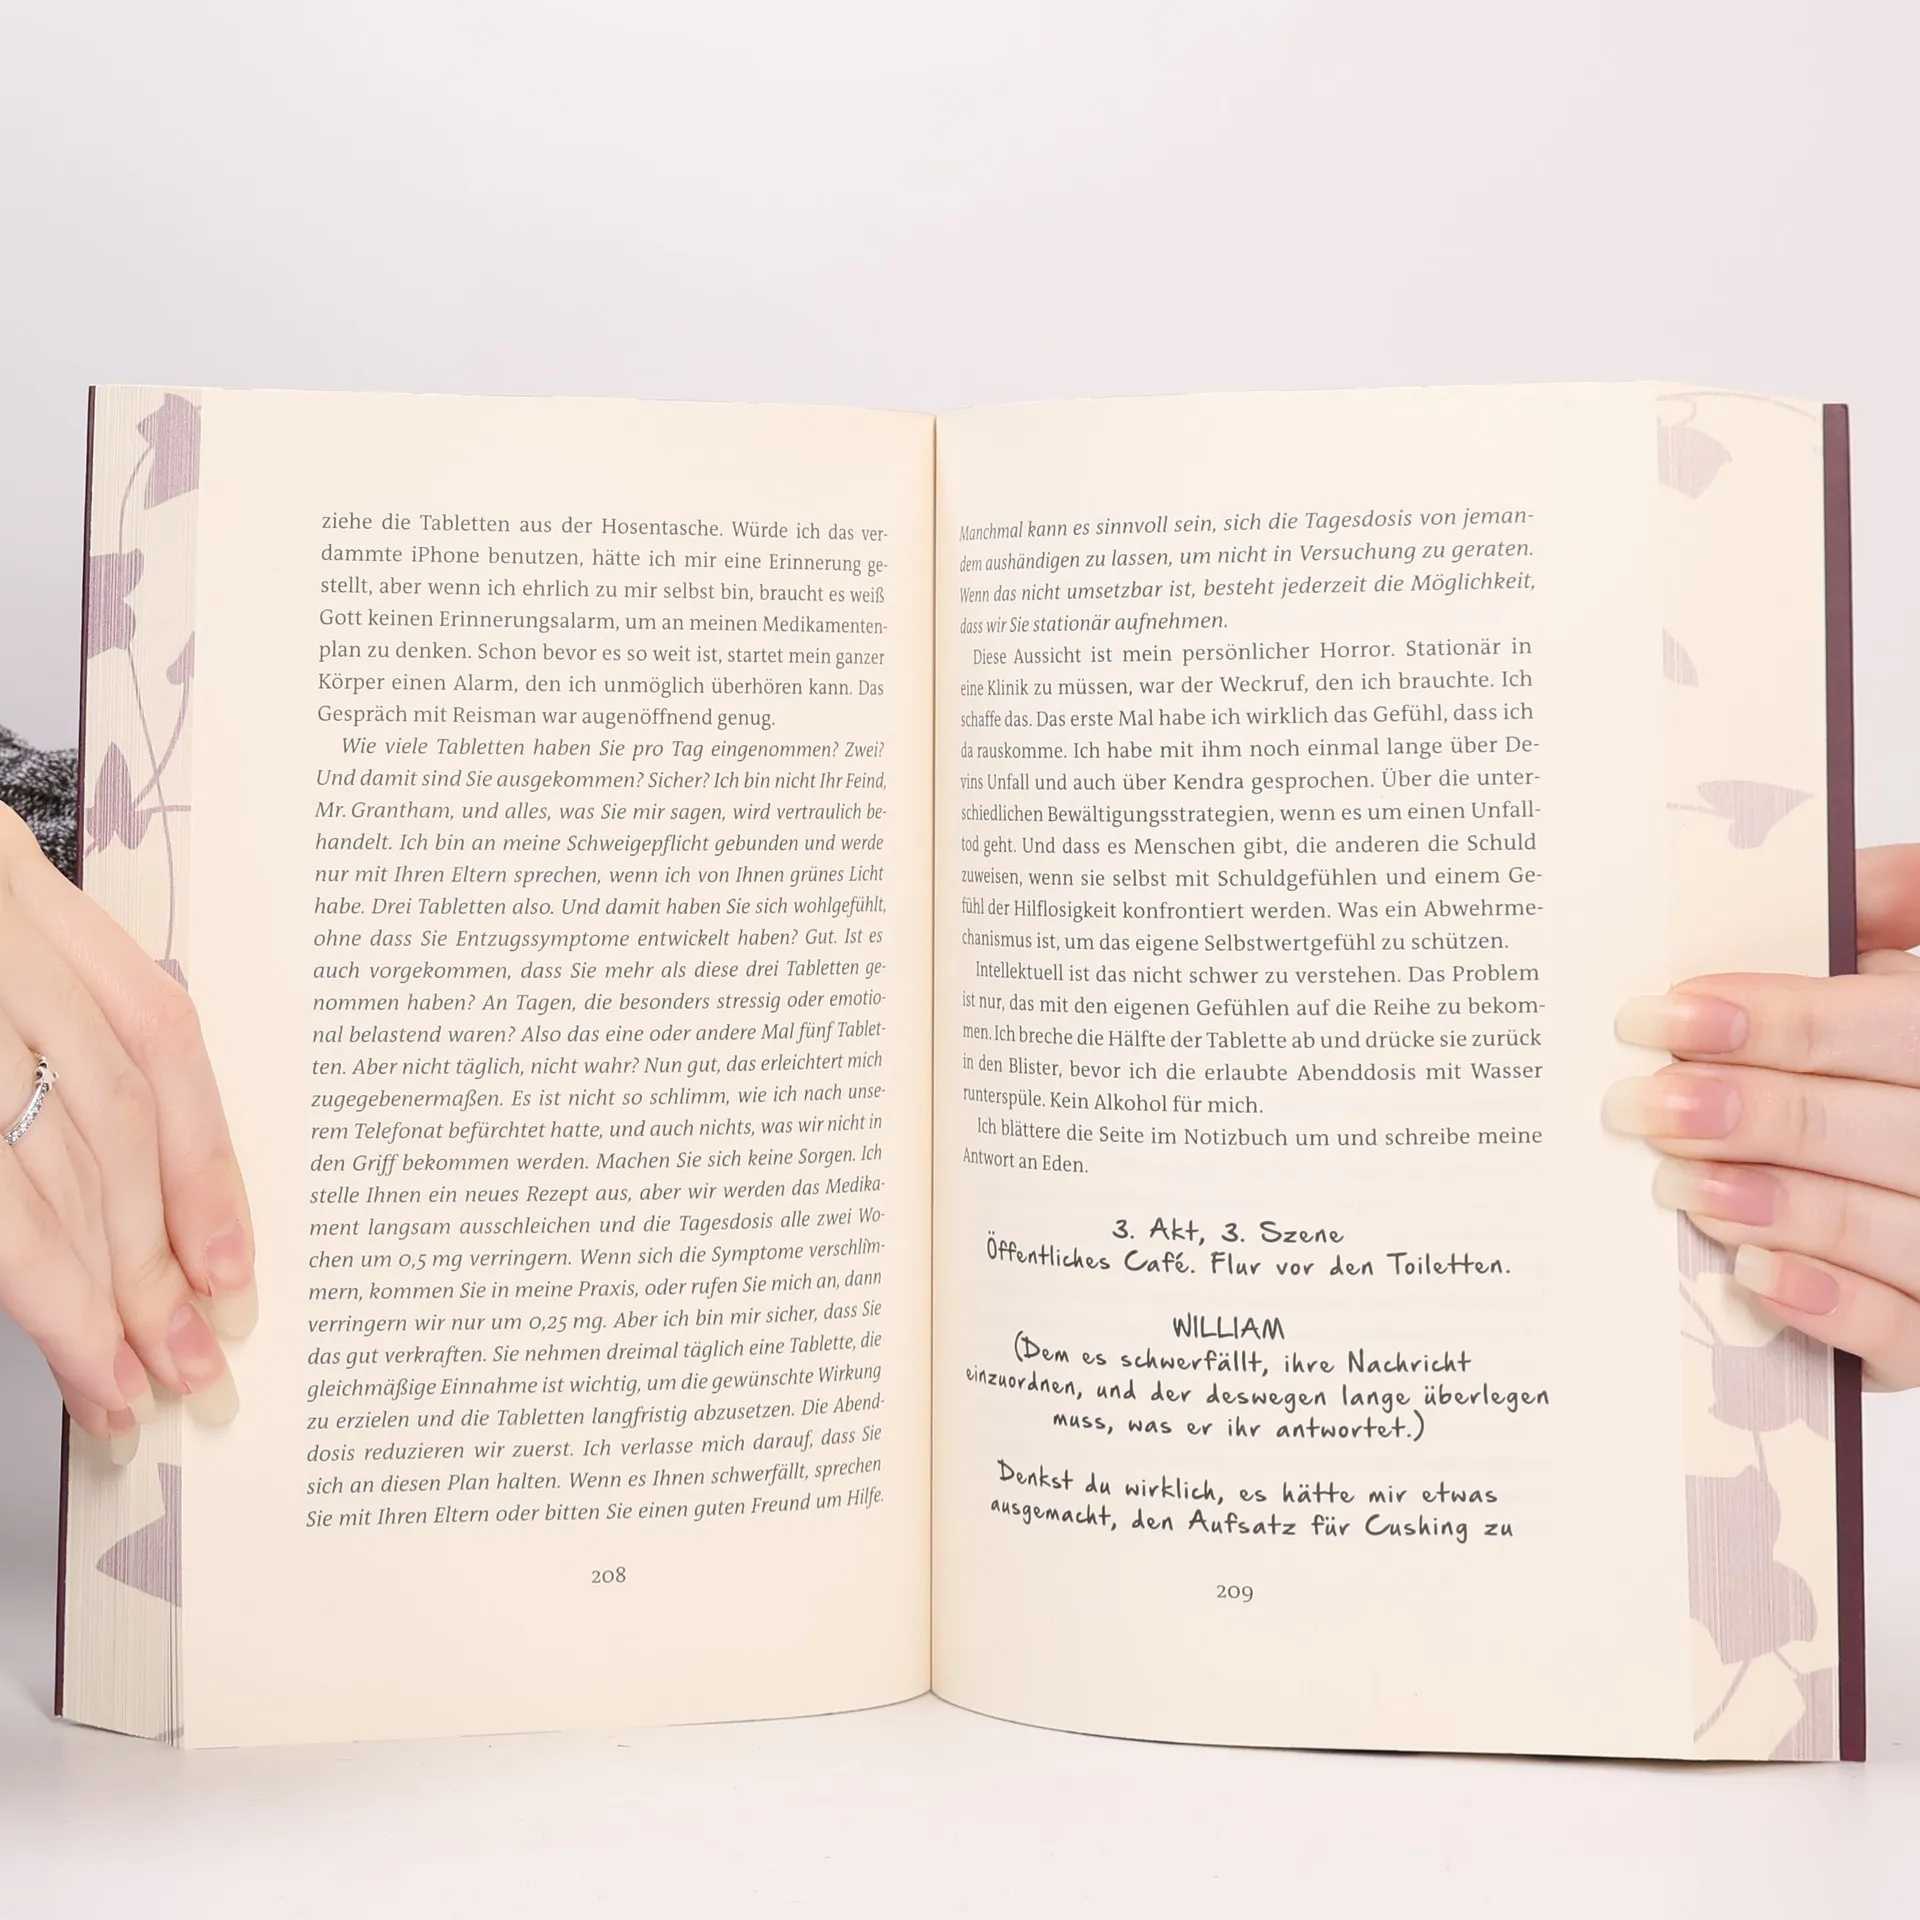 ziehe die Tabletten aus der Hosentasche. Würde ich das ver-
dammte iPhone benutzen, hätte ich mir eine Erinnerung ge-
stellt, aber wenn ich ehrlich zu mir selbst bin, braucht es weiß
Gott keinen Erinnerungsalarm, um an meinen Medikamenten-
plan zu denken. Schon bevor es so weit ist, startet mein ganzer
Körper einen Alarm, den ich unmöglich überhören kann. Das
Gespräch mit Reisman war augenöffnend genug.
Wie viele Tabletten haben Sie pro Tag eingenommen? Zwei?
Und damit sind Sie ausgekommen? Sicher? Ich bin nicht Ihr Feind,
Mr. Grantham, und alles, was Sie mir sagen, wird vertraulich be-
handelt. Ich bin an meine Schweigepflicht gebunden und werde
nur mit Ihren Eltern sprechen, wenn ich von Ihnen grünes Licht
habe. Drei Tabletten also. Und damit haben Sie sich wohlgefühlt,
ohne dass Sie Entzugssymptome entwickelt haben? Gut. Ist es
auch vorgekommen, dass Sie mehr als diese drei Tabletten ge-
nommen haben? An Tagen, die besonders stressig oder emotio-
nal belastend waren? Also das eine oder andere Mal fünf Tablet-
ten. Aber nicht täglich, nicht wahr? Nun gut, das erleichtert mich
zugegebenermaßen. Es ist nicht so schlimm, wie ich nach unse-
rem Telefonat befürchtet hatte, und auch nichts, was wir nicht in
den Griff bekommen werden. Machen Sie sich keine Sorgen. Ich
stelle Ihnen ein neues Rezept aus, aber wir werden das Medika-
ment langsam ausschleichen und die Tagesdosis alle zwei Wo-
chen um 0,5 mg verringern. Wenn sich die Symptome verschlim-
mern, kommen Sie in meine Praxis, oder rufen Sie mich an, dann
verringern wir nur um 0,25 mg. Aber ich bin mir sicher, dass Sie
das gut verkraften. Sie nehmen dreimal täglich eine Tablette, die
gleichmäßige Einnahme ist wichtig, um die gewünschte Wirkung
zu erzielen und die Tabletten langfristig abzusetzen. Die Abend-
dosis reduzieren wir zuerst. Ich verlasse mich darauf, dass Sie
sich an diesen Plan halten. Wenn es Ihnen schwerfällt, sprechen
Sie mit Ihren Eltern oder bitten Sie einen guten Freund um Hilfe.
208
Manchmal kann es sinnvoll sein, sich die Tagesdosis von jeman-
dem aushändigen zu lassen, um nicht in Versuchung zu geraten.
Wenn das nicht umsetzbar ist, besteht jederzeit die Möglichkeit,
dass wir Sie stationär aufnehmen.
Diese Aussicht ist mein persönlicher Horror. Stationär in
eine Klinik zu müssen, war der Weckruf, den ich brauchte. Ich
schaffe das. Das erste Mal habe ich wirklich das Gefühl, dass ich
da rauskomme. Ich habe mit ihm noch einmal lange über De-
vins Unfall und auch über Kendra gesprochen. Über die unter-
schiedlichen Bewältigungsstrategien, wenn es um einen Unfall-
tod geht. Und dass es Menschen gibt, die anderen die Schuld
zuweisen, wenn sie selbst mit Schuldgefühlen und einem Ge-
fühl der Hilflosigkeit konfrontiert werden. Was ein Abwehrme-
chanismus ist, um das eigene Selbstwertgefühl zu schützen.
Intellektuell ist das nicht schwer zu verstehen. Das Problem
ist nur, das mit den eigenen Gefühlen auf die Reihe zu bekom-
men. Ich breche die Hälfte der Tablette ab und drücke sie zurück
in den Blister, bevor ich die erlaubte Abenddosis mit Wasser
runterspüle. Kein Alkohol für mich.
Ich blättere die Seite im Notizbuch um und schreibe meine
Antwort an Eden.
3. Akt, 3. Szene
Öffentliches Café. Flur vor den Toiletten.
WILLIAM
(Dem es schwerfällt, ihre Nachricht
einzuordnen, und der deswegen lange überlegen
muss, was er ihr antwortet.)
Denkst du wirklich, es hätte mir etwas
ausgemacht, den Aufsatz für Cushing zu
209